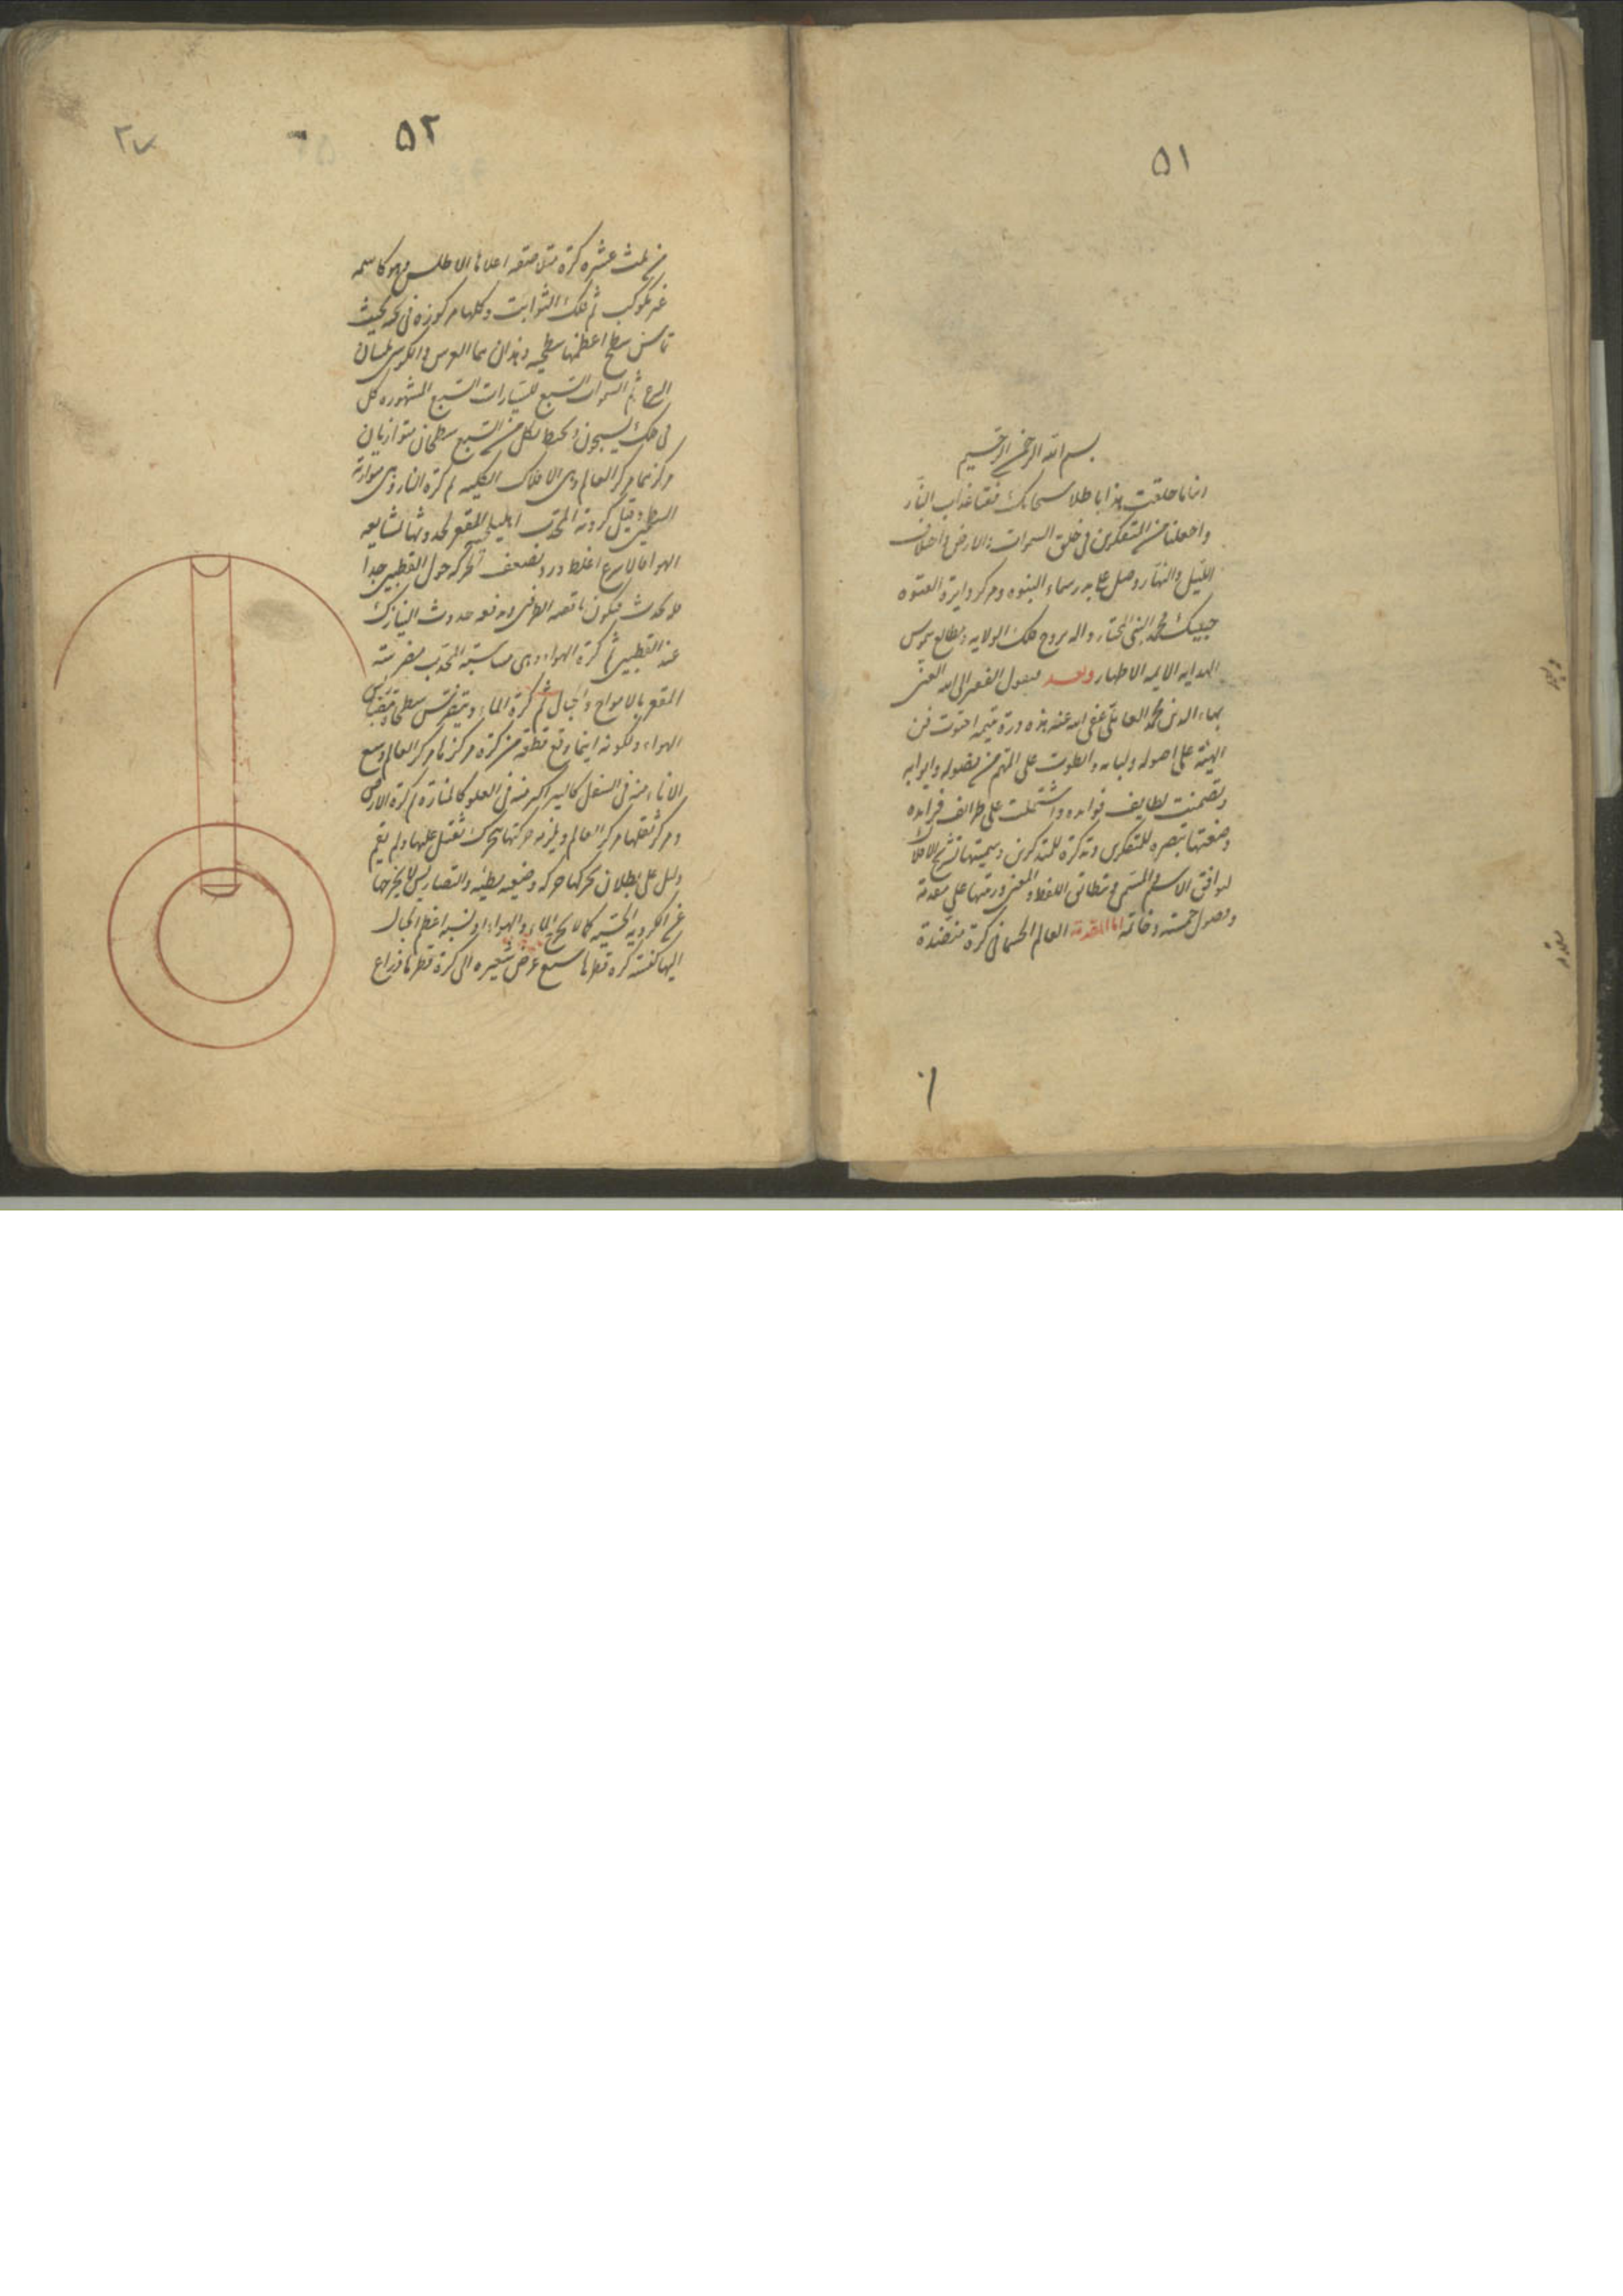 ٥١
بسم الله الرحمن الرحيم
ربنا ما خلقت هذا باطلا سبحانك فقنا عذاب النار
واجعلنا من المتفكرين في خلق السموات والارض واختلاف
الليل والنهار وصل على بدر سماء النبوه ومركز دايرة الفتوه
حبيبك محمد النبي المختار واله بروج فلك الولايه ومطالع شموس
الهدايه الايمه الاطهار وبعد فيقول الفقير الى الله الغني
بهاء الدين محمد العاملي عفى الله عنه هذه درة يتيمه احتوت من
الهيئة على اصوله ولبابه وانطوت على المهم من فصوله وابوابه
وتضمنت لطايف فوايده واشتملت على طرائف فرايده
وضعتها تبصره للمتفكرين وتذكرة للمتذكرين وسميتها تشريح الافلاك
ليوافق الاسم المسمى وتطابق اللفظ المعنى ورتبتها على مقدمة
وفصول خمسة وخاتمه اما المقدمة العالم الجسماني كرة منضدة
٥٢
٣٧
من ثلث عشره كرة متلاصقه اعلاها الاطلس وهو كاسمه
غير مكوكب ثم فلك الثوابت وكلها مركوزه في ثخنه بحيث
تماس سطح اعظمها سطحيه وهذان هما العرش والكرسي بلسان
الشرع ثم السموات السبع للسيارات السبع المشهوره كل
في فلك يسبحون ويحيط بكل من السبع سطحان متوازيان
مركزهما مركز العالم وهي الافلاك الكليه ثم كرة النار وهي متوازية
السطحين وقيل كروية المحدب اهليلجية المقعر لحدوثها بمشايعه
الهواء فالاسرع اغلظ ورد بضعف الحركه حول القطبين جدا
فلا تحدث فيكون ناقصه الطرفين ويدفعه حدوث النيازك
عند القطبين ثم كرة الهواء وهي مناسبة المحدب مضرسة
المقعر بالامواج والجبال ثم كرة الماء ويتضرس سطحاه بتضاريس
الهواء ولكونه اينما وقع قطعة من كرة مركزها مركز العالم وسع
الاناء منه في السفل كالبير اكثر منه في العلو كالمنارة ثم كرة الارض
ومركز ثقلها مركز العالم ويلزمه حركتها بتحرك ثقيل عليها ولم يقم
دليل على بطلان تحركها حركه وضعيه بطيئه والتضاريس لا يخرجها
عن الكرويه الحسيه كما لا يخرج الماء والهواء اذ نسبة اعظم الجبال
اليها كنسبة كره قطرها سبع عرض شعيره الى كرة قطرها ذراع